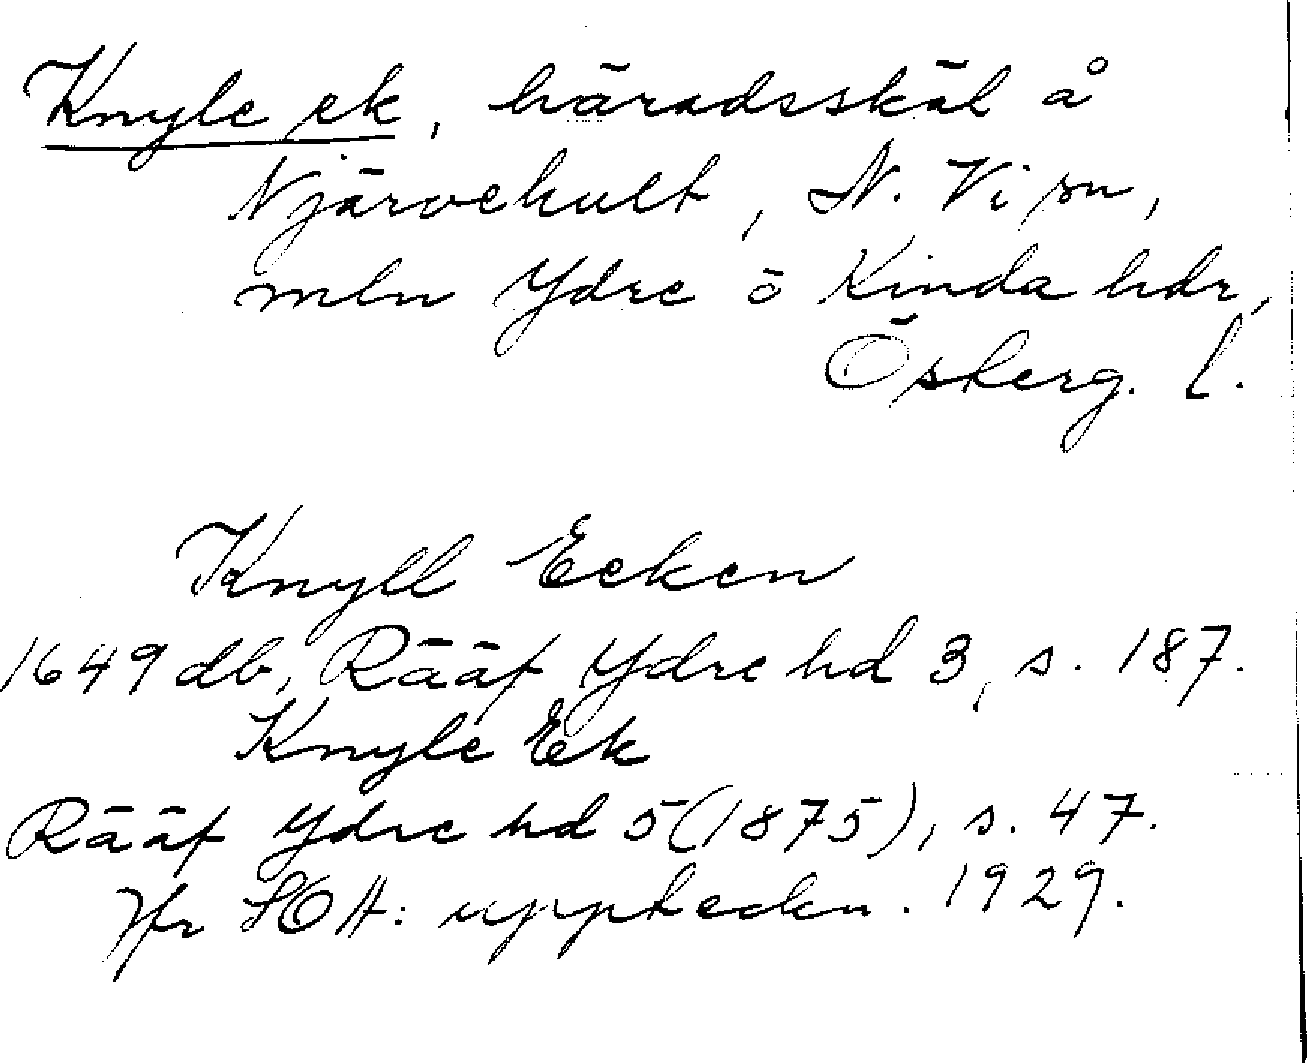 Knyle ek, häradsskäl å
Njärvehult, N. Vi sn,
mln Ydre o Kinda hdr,
Österg. l.
Knyll Ecken
1649 db, Rääf Ydre hd 3, s. 187.
Knyle Ek
Rääf Ydre hd 5 (1875), s. 47.
Jfr SOA: uppteckn. 1929.